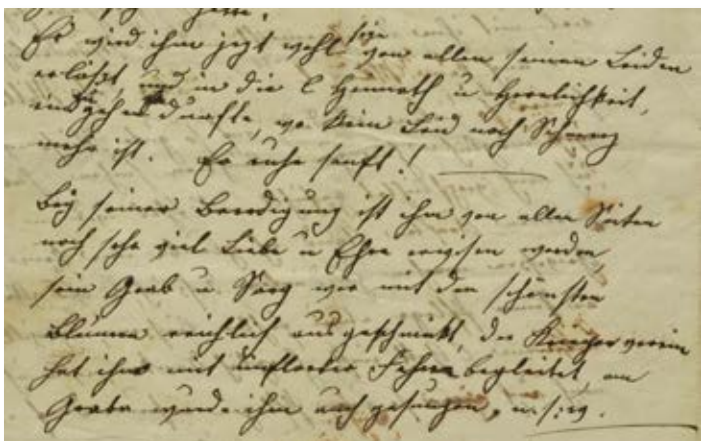 Es wird ihm jezt wohl sein von allen seinen Leiden
erlößt, und in die l Heimath u Herrlichkeit,
eingehen durfte, wo kein Leid noch Schmerz
mehr ist. Er ruhe sanft!
Bey seiner Beerdigung ist ihm von allen Seiten
noch sehr viel Liebe u Ehre erwisen worden,
sein Grab u. Sarg war mit den schönsten
Blumen reichlich ausgeschmükt, der Kriegerverein
hat ihn mit umflorter Fahne begleitet, am
Grabe wurde ihm auch gesungen, u. s. w.